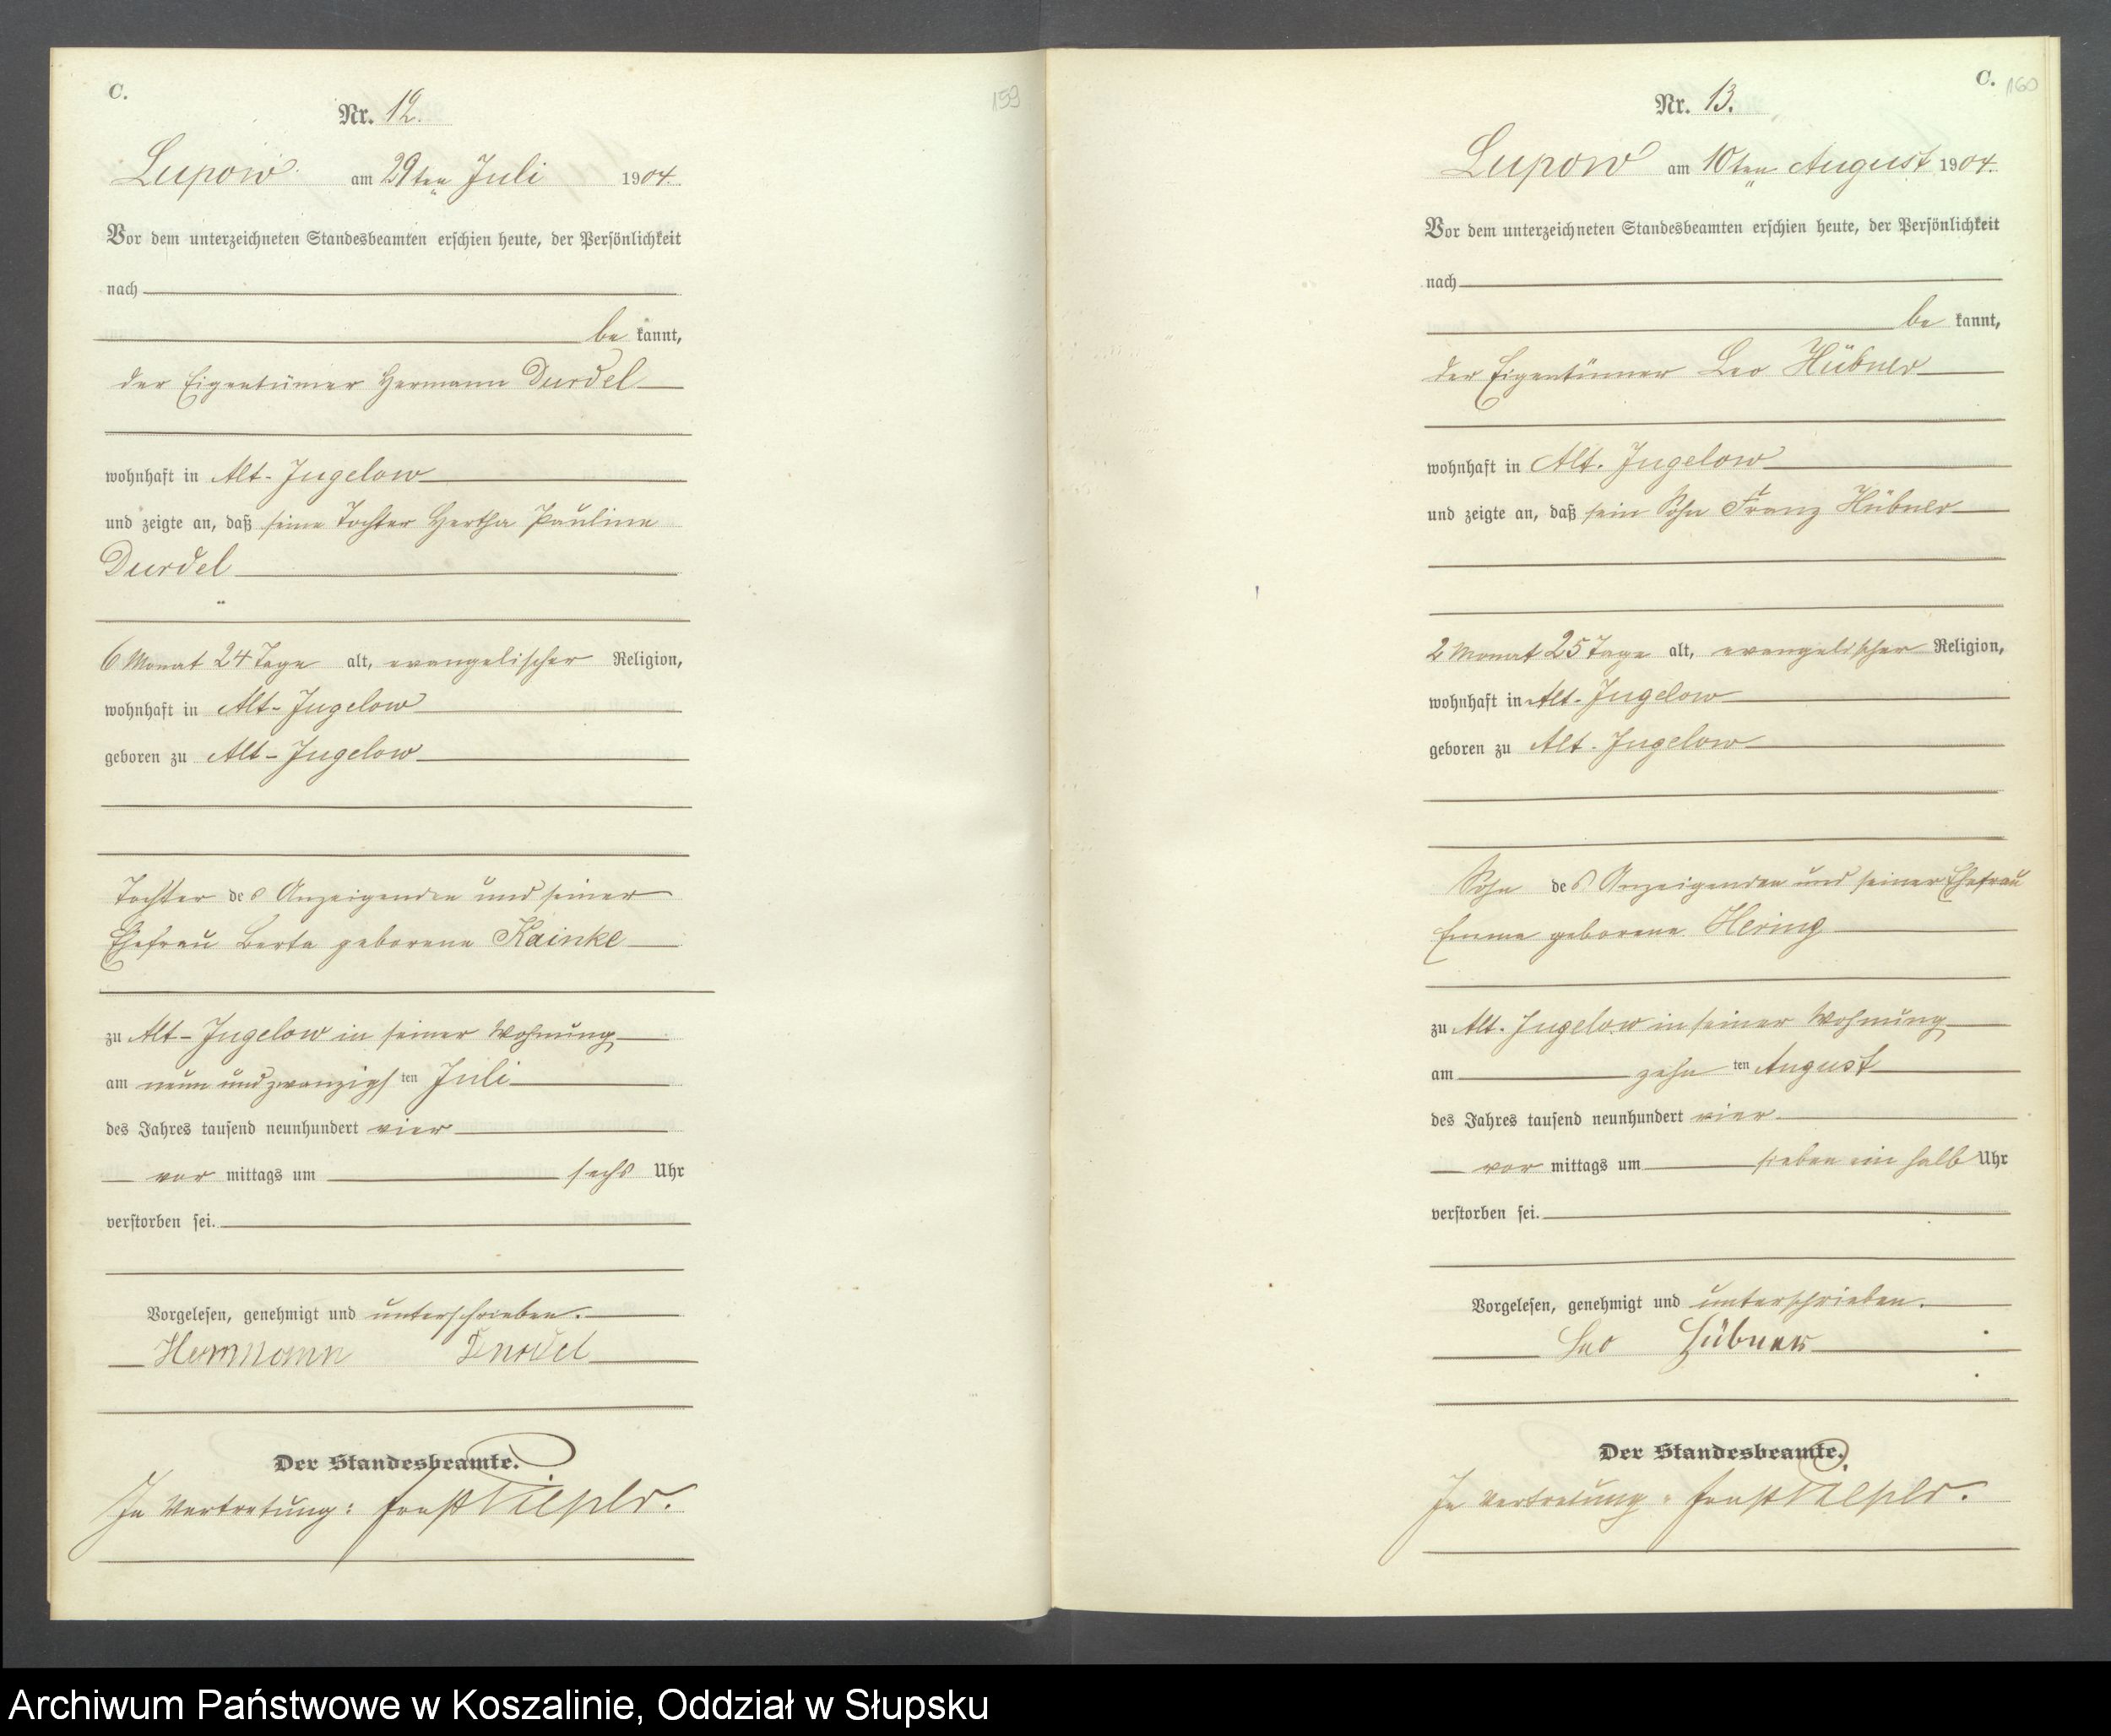 C.
159
Nr. 12.
Lupow am 29ten Juli 1904.
Vor dem unterzeichneten Standesbeamten erschien heute, der Persönlichkeit
nach
be kannt,
der Eigentümer Hermann Durdel
wohnhaft in Alt-Jugelow
und zeigte an, daß seine Tochter Hertha Pauline
Durdel
6 Monat 24 Tage alt, evangelischer Religion,
wohnhaft in Alt-Jugelow
geboren zu Alt-Jugelow
Tochter des Anzeigenden und seiner
Ehefrau Berta geborene Kainke
zu Alt-Jugelow in seiner Wohnung
am neun und zwanzigsten Juli
des Jahres tausend neunhundert vier
vor mittags um sechs Uhr
verstorben sei.
Vorgelesen, genehmigt und unterschrieben.
Hermmann Durdel
Der Standesbeamte.
In Vertretung: Ernst
C.
160
Nr. 13.
Lupow am 10ten August 1904.
Vor dem unterzeichneten Standesbeamten erschien heute, der Persönlichkeit
nach
be kannt,
der Eigentümer Leo Hübner
wohnhaft in Alt-Jugelow
und zeigte an, daß sein Sohn Franz Hübner
2 Monat 25 Tage alt, evangelischer Religion,
wohnhaft in Alt-Jugelow
geboren zu Alt-Jugelow
Sohn des Anzeigenden und seiner Ehefrau
Emma geborene Hering
zu Alt-Jugelow in seiner Wohnung
am zehn ten August
des Jahres tausend neunhundert vier
vor mittags um sieben ein halb Uhr
verstorben sei.
Vorgelesen, genehmigt und unterschrieben.
Leo Hübner
Der Standesbeamte.
In Vertretung: Ernst
Archiwum Państwowe w Koszalinie, Oddział w Słupsku